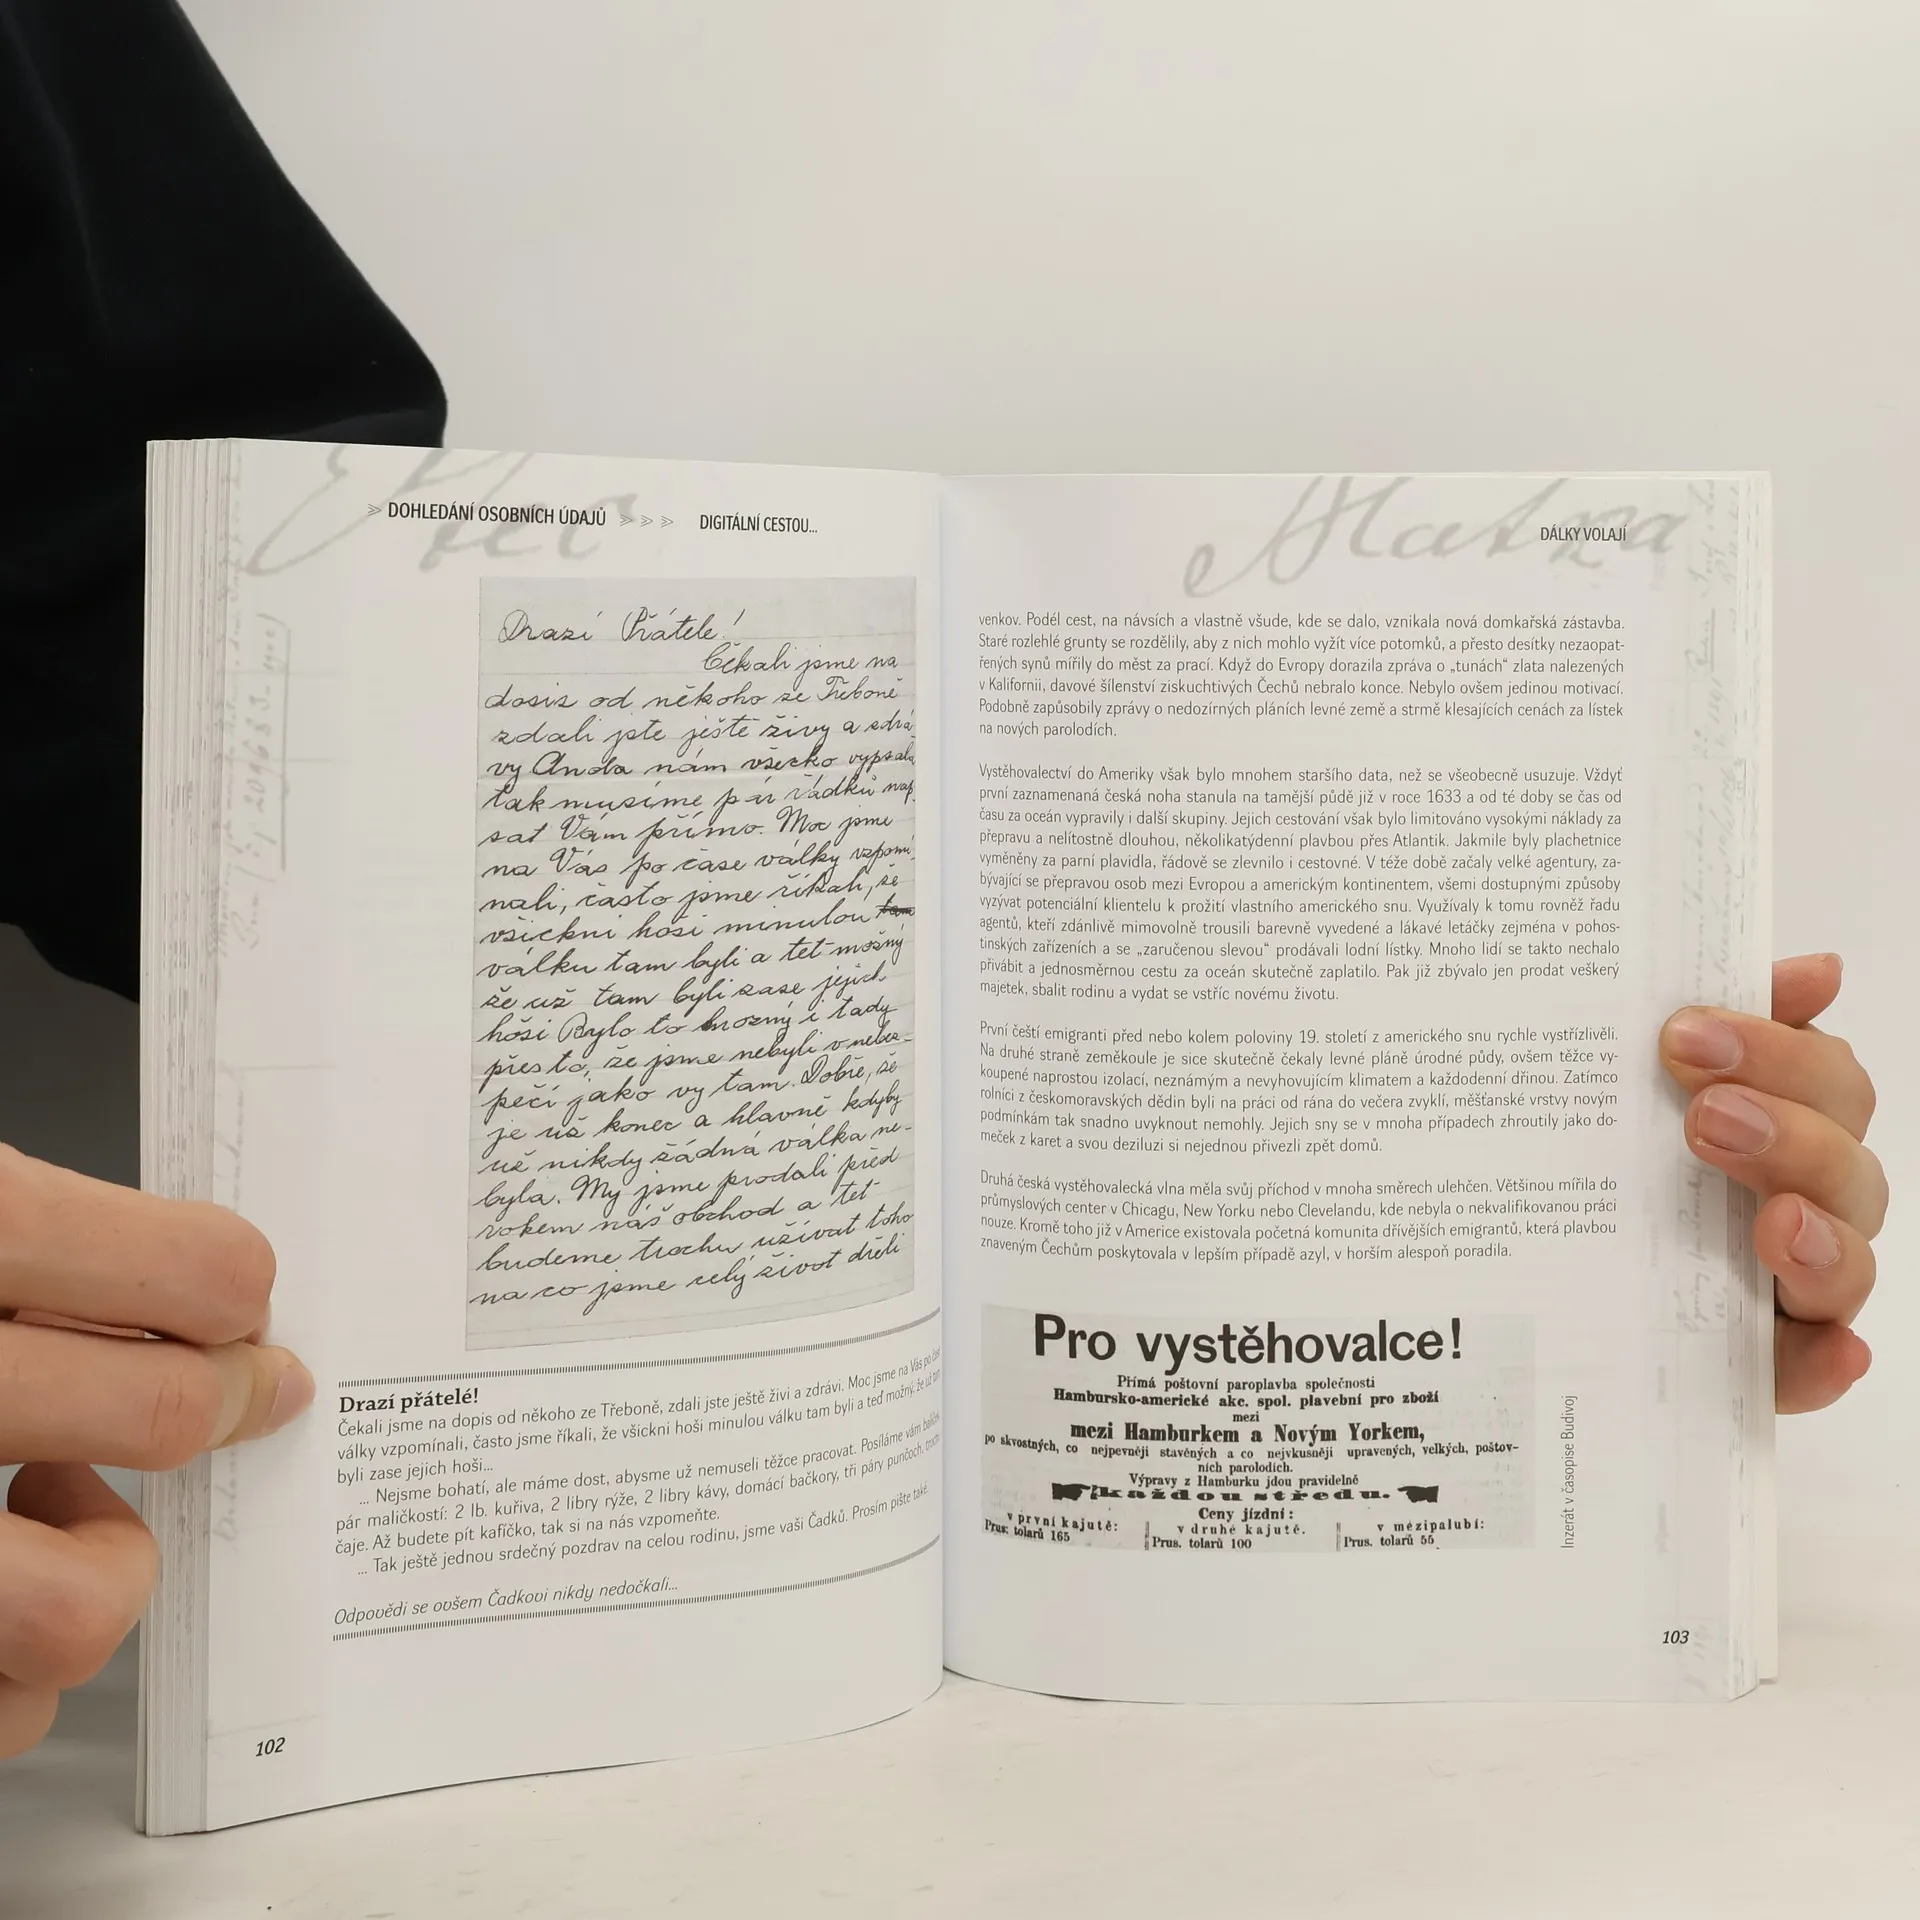 » DOHLEDÁNÍ OSOBNÍCH ÚDAJŮ » » » DIGITÁLNÍ CESTOU...
Drazí Přátele!
Čekali jsme na
dosis od někoho ze Třeboně
zdali jste ještě živy a zdrá
vy Anda nám všecko vypsala
tak musíme pár řádků nap
sat Vám přímo. Moc jsme
na Vás po čase války vzpomí
nali, často jsme říkali, že
všickni hoši minulou tam
válku tam byli a teť možný
že už tam byli zase jejich
hoši Bylo to hrozný i tady
přes to, že jsme nebyli v nebez-
pečí jako vy tam. Dobře, že
je už konec a hlavně kdyby
už nikdy žádná válka ne-
byla. My jsme prodali před
rokem náš obchod a teť
budeme trochu užívat toho
na co jsme celý život dřeli
Drazí přátelé!
Čekali jsme na dopis od někoho ze Třeboně, zdali jste ještě živi a zdrávi. Moc jsme na Vás po čase
války vzpomínali, často jsme říkali, že všickni hoši minulou válku tam byli a teď možný, že už tam
byli zase jejich hoši...
... Nejsme bohatí, ale máme dost, abysme už nemuseli těžce pracovat. Posíláme vám balíček
pár maličkostí: 2 lb. kuřiva, 2 libry rýže, 2 libry kávy, domácí bačkory, tři páry punčoch, trochu
čaje. Až budete pít kafíčko, tak si na nás vzpomeňte.
... Tak ještě jednou srdečný pozdrav na celou rodinu, jsme vaši Čadků. Prosím pište také.
Odpovědi se ovšem Čadkovi nikdy nedočkali...
102
Matka
DÁLKY VOLAJÍ
venkov. Podél cest, na návsích a vlastně všude, kde se dalo, vznikala nová domkařská zástavba.
Staré rozlehlé grunty se rozdělily, aby z nich mohlo vyžít více potomků, a přesto desítky nezaopat-
řených synů mířily do měst za prací. Když do Evropy dorazila zpráva o „tunách“ zlata nalezených
v Kalifornii, davové šílenství ziskuchtivých Čechů nebralo konce. Nebylo ovšem jedinou motivací.
Podobně zapůsobily zprávy o nedozírných pláních levné země a strmě klesajících cenách za lístek
na nových parolodích.
Vystěhovalectví do Ameriky však bylo mnohem staršího data, než se všeobecně usuzuje. Vždyť
první zaznamenaná česká noha stanula na tamější půdě již v roce 1633 a od té doby se čas od
času za oceán vypravily i další skupiny. Jejich cestování však bylo limitováno vysokými náklady za
přepravu a nelítostně dlouhou, několikatýdenní plavbou přes Atlantik. Jakmile byly plachetnice
vyměněny za parní plavidla, řádově se zlevnilo i cestovné. V téže době začaly velké agentury, za-
bývající se přepravou osob mezi Evropou a americkým kontinentem, všemi dostupnými způsoby
vyzývat potenciální klientelu k prožití vlastního amerického snu. Využívaly k tomu rovněž řadu
agentů, kteří zdánlivě mimovolně trousili barevně vyvedené a lákavé letáčky zejména v pohos-
tinských zařízeních a se „zaručenou slevou“ prodávali lodní lístky. Mnoho lidí se takto nechalo
přivábit a jednosměrnou cestu za oceán skutečně zaplatilo. Pak již zbývalo jen prodat veškerý
majetek, sbalit rodinu a vydat se vstříc novému životu.
První čeští emigranti před nebo kolem poloviny 19. století z amerického snu rychle vystřízlivěli.
Na druhé straně zeměkoule je sice skutečně čekaly levné pláně úrodné půdy, ovšem těžce vy-
koupené naprostou izolací, neznámým a nevyhovujícím klimatem a každodenní dřinou. Zatímco
rolníci z českomoravských dědin byli na práci od rána do večera zvyklí, měšťanské vrstvy novým
podmínkám tak snadno uvyknout nemohly. Jejich sny se v mnoha případech zhroutily jako do-
meček z karet a svou deziluzi si nejednou přivezli zpět domů.
Druhá česká vystěhovalecká vlna měla svůj příchod v mnoha směrech ulehčen. Většinou mířila do
průmyslových center v Chicagu, New Yorku nebo Clevelandu, kde nebyla o nekvalifikovanou práci
nouze. Kromě toho již v Americe existovala početná komunita dřívějších emigrantů, která plavbou
znaveným Čechům poskytovala v lepším případě azyl, v horším alespoň poradila.
Pro vystěhovalce!
Přímá poštovní paroplavba společnosti
Hambursko-americké akc. spol. plavební pro zboží
mezi
mezi Hamburkem a Novým Yorkem,
po skvostných, co nejpevněji stavěných a co nejvkusněji upravených, velkých, poštov-
ních parolodích.
Výpravy z Hamburku jdou pravidelně
každou středu.
Ceny jízdní:
v první kajutě: v druhé kajutě. v mezipalubí:
Prus. tolarů 165 Prus. tolarů 100 Prus. tolarů 55
Inzerát v časopise Budivoj
103